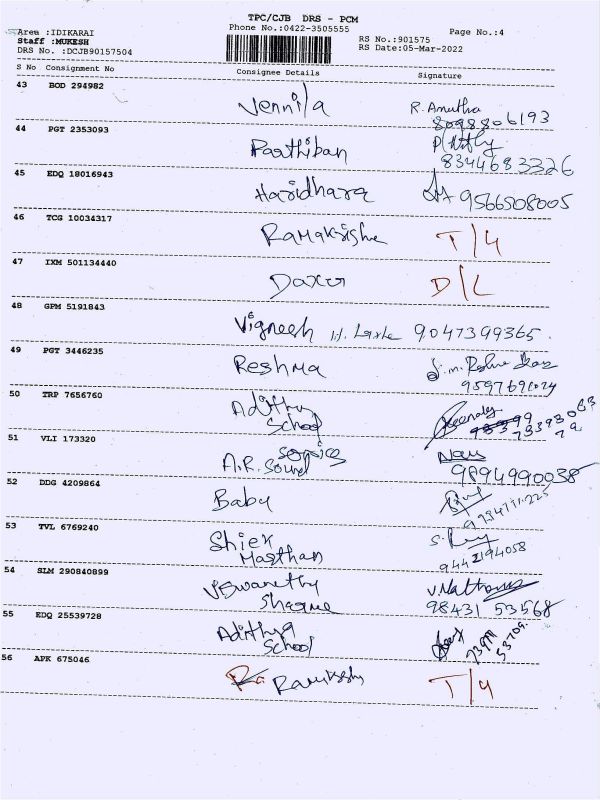 TPC/CJB DRS - PCM
Phone No.:0422-3505555
Page No.:4
Area :IDIKARAI
Staff :MUKESH
DRS No. :DCJB90157504
RS No.:901575
RS Date:05-Mar-2022
S No Consignment No Consignee Details Signature
43 BOD 294982 Vennila R. Anutha
8098806193
44 PGT 2353093 Parthiban
8344683326
45 EDQ 18016943 Haridhara 9566508005
46 TCG 10034317 Ramakrishe T/4
47 IXM 501134440 Daxor D/L
48 GPM 5191843 Vignesh 9047399365.
49 PGT 3446235 Reshma
9597691024
50 TRP 7656760 Adithy
School
51 VLI 173320 A.R. Sound Service
9894990038
52 DDG 4209864 Baby
53 TVL 6769240 Shiek
Masthan
9442194058
54 SLM 290840899 Viswanethy
Sharme
98431 53568
55 EDQ 25539728 Adithya
School
56 APK 675046 T/4